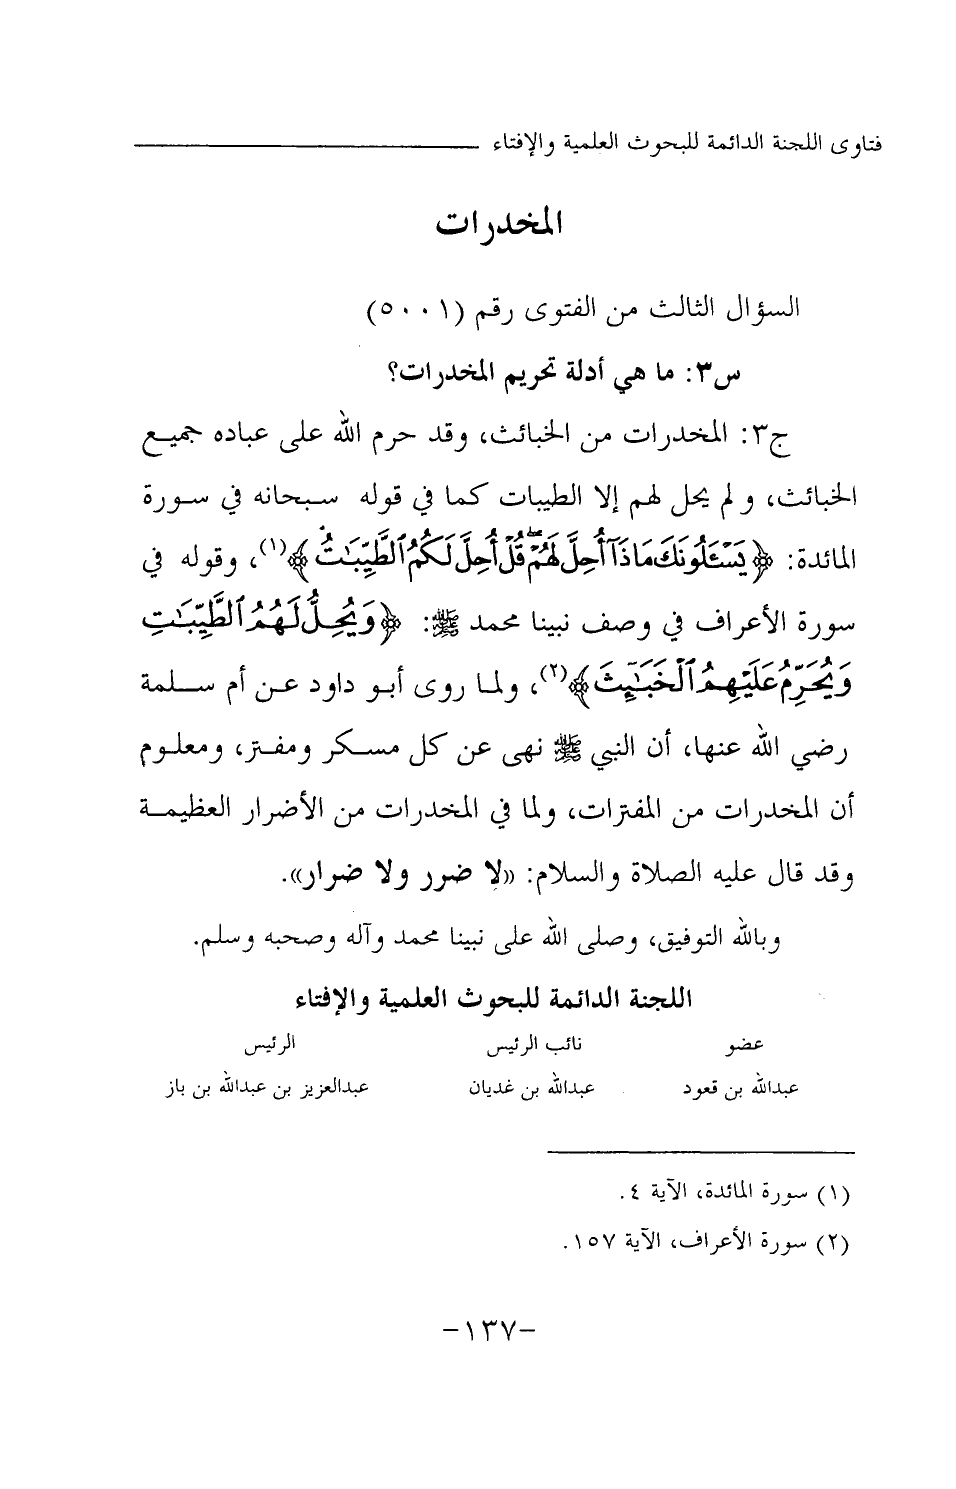 فتاوى اللجنة الدائمة للبحوث العلمية والإفتاء
المخدرات
السؤال الثالث من الفتوى رقم (٥٠٠١)
س٣: ما هي أدلة تحريم المخدرات؟
ج٣: المخدرات من الخبائث، وقد حرم الله على عباده جميع
الخبائث، ولم يحل لهم إلا الطيبات كما في قوله سبحانه في سورة
المائدة: ﴿يَسْـَٔلُونَكَ مَاذَآ أُحِلَّ لَهُمْ ۖ قُلْ أُحِلَّ لَكُمُ ٱلطَّيِّبَـٰتُ﴾(١)، وقوله في
سورة الأعراف في وصف نبينا محمد ﷺ: ﴿وَيُحِلُّ لَهُمُ ٱلطَّيِّبَـٰتِ
وَيُحَرِّمُ عَلَيْهِمُ ٱلْخَبَـٰٓئِثَ﴾(٢)، ولما روى أبو داود عن أم سلمة
رضي الله عنها، أن النبي ﷺ نهى عن كل مسكر ومفتر، ومعلوم
أن المخدرات من المفترات، ولما في المخدرات من الأضرار العظيمة
وقد قال عليه الصلاة والسلام: «لا ضرر ولا ضرار».
وبالله التوفيق، وصلى الله على نبينا محمد وآله وصحبه وسلم.
اللجنة الدائمة للبحوث العلمية والإفتاء
عضو نائب الرئيس الرئيس
عبدالله بن قعود عبدالله بن غديان عبدالعزيز بن عبدالله بن باز
(١) سورة المائدة، الآية ٤.
(٢) سورة الأعراف، الآية ١٥٧.
-١٣٧-